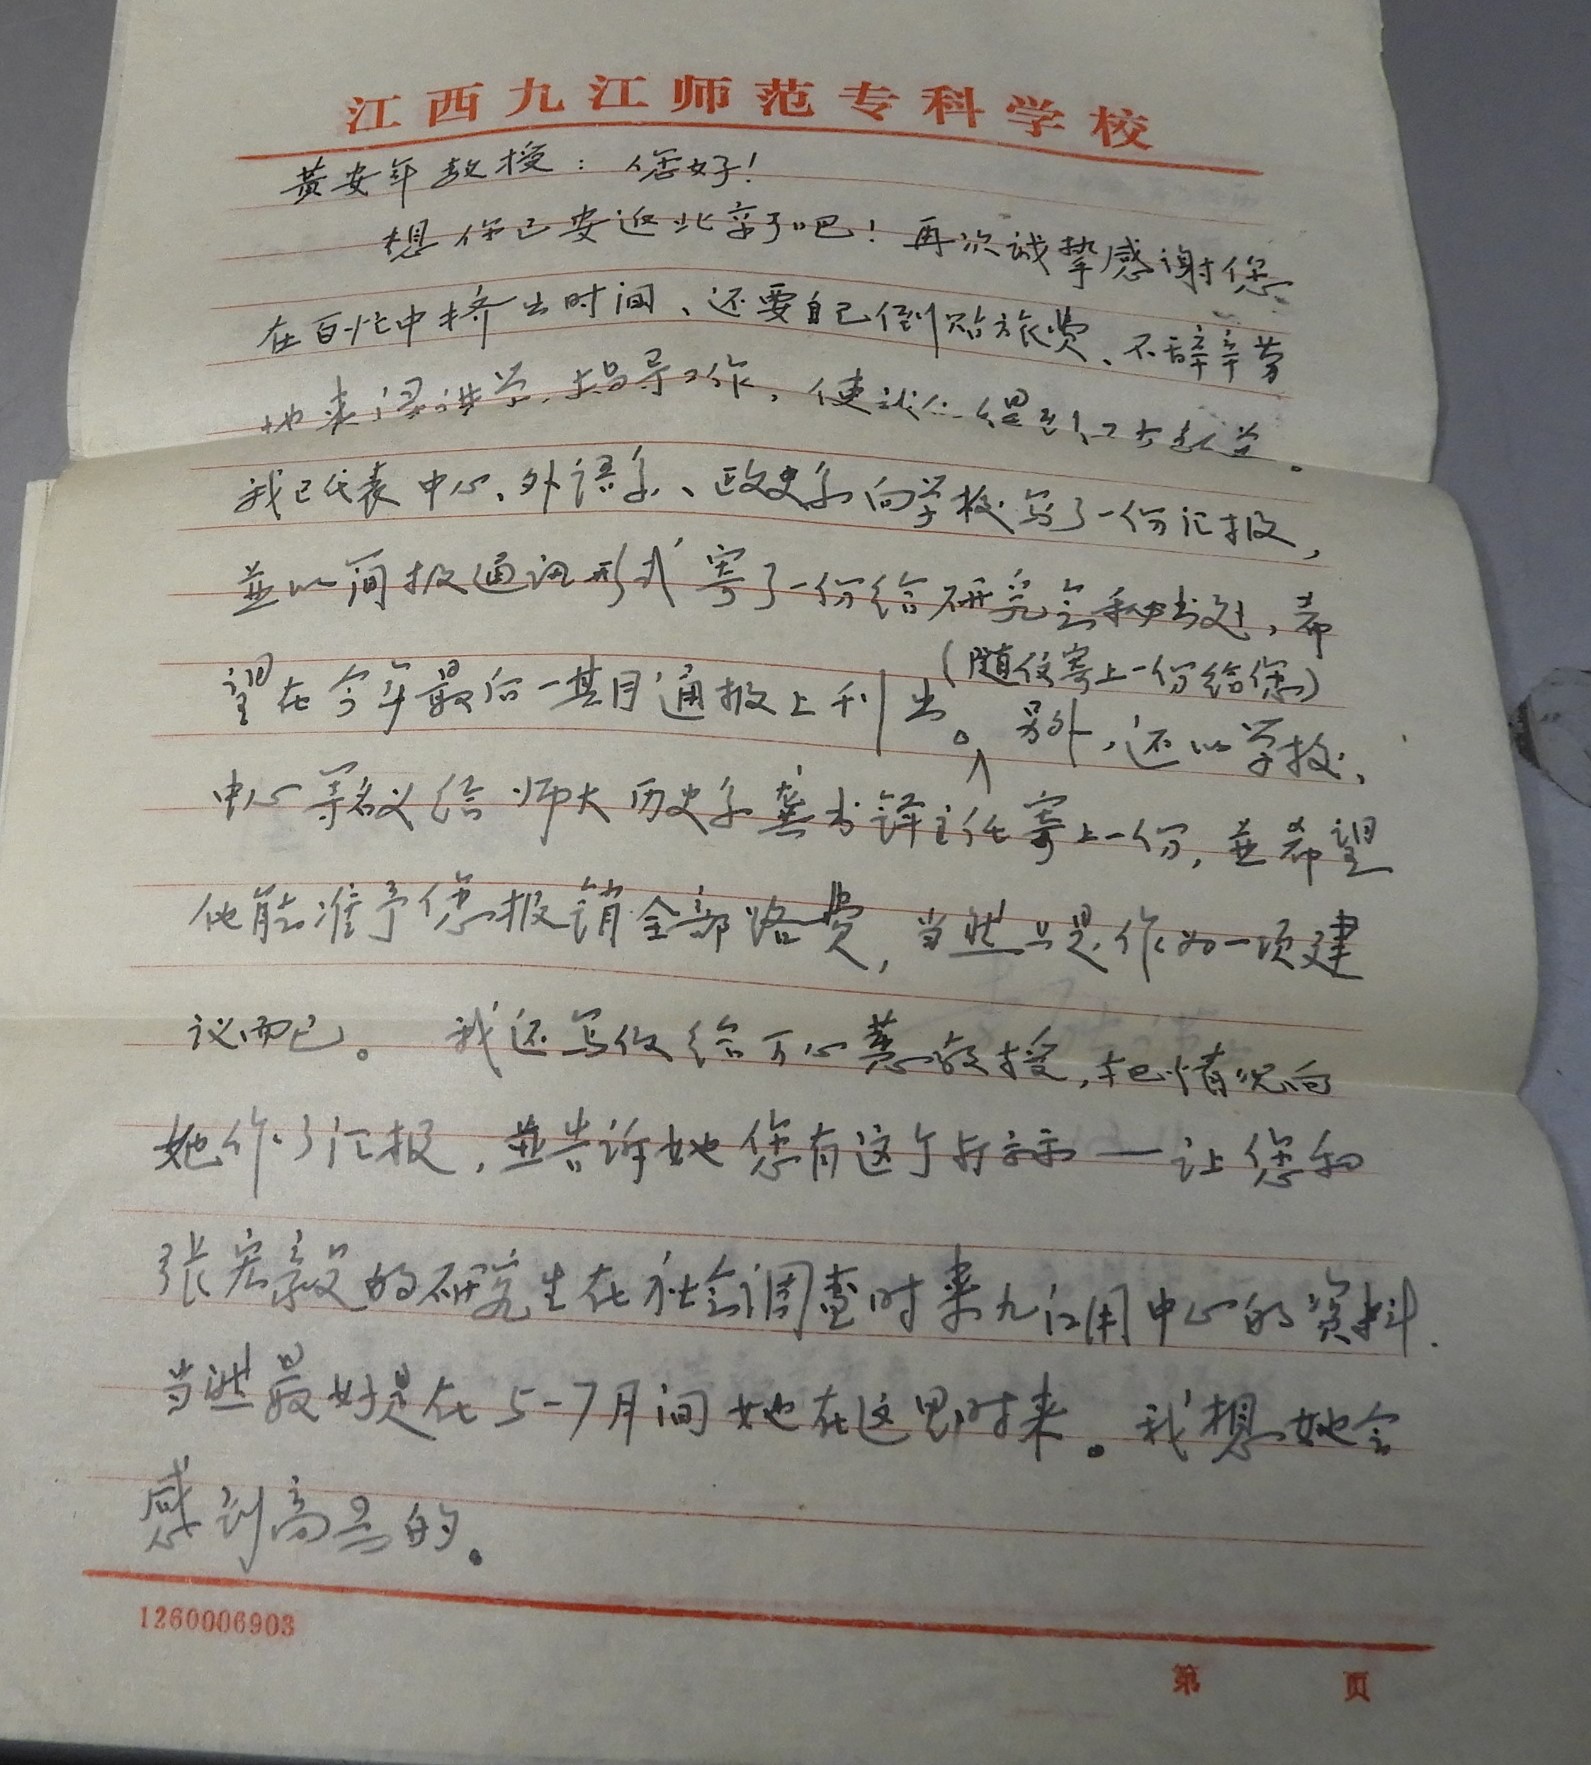 江西九江师范专科学校
黄安年教授：您好！
想您已安返北京了吧！再次诚挚感谢您
在百忙中挤出时间、还要自己倒贴旅费、不辞辛劳
地来浔讲学、指导工作，使我们得到
我已代表中心、外语系、政史系向学校写了一份汇报，
並以简报通讯形式寄了一份给研究会秘书处，希
(随信寄上一份给您)
望在今年最后一期通报上刊出。另外，还以学校、
中心等名义给师大历史系龚书铎主任寄上一份，並希望
他能准予您报销全部路费，当然只是作为一项建
议而已。 我还写信给万心蕙教授，把情况向
她作了汇报，並告诉她您有这个打示—让您和
张宏毅的研究生在社会调查时来九江用中心的资料.
当然最好是在5-7月间她在这里时来。我想她会
感到高兴的。
1260006903
第 页